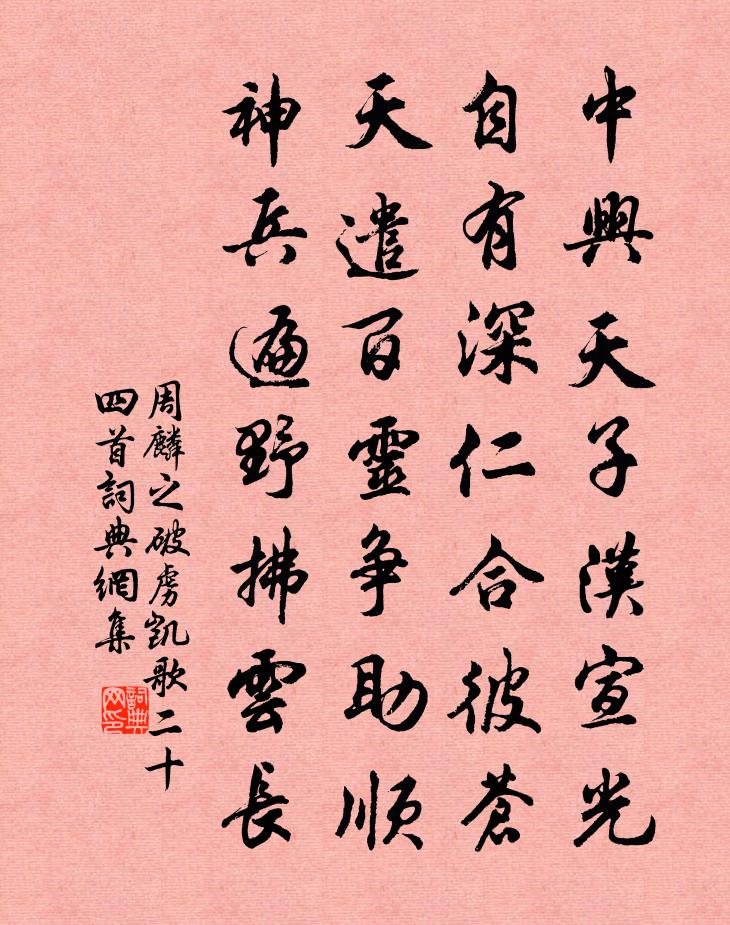 中興天子漢宣光
自有深仁合彼蒼
天遣百靈争助順
神兵遍野拂雲長
周麟之破虜凱歌二十
四首詞典網集
詞典网印